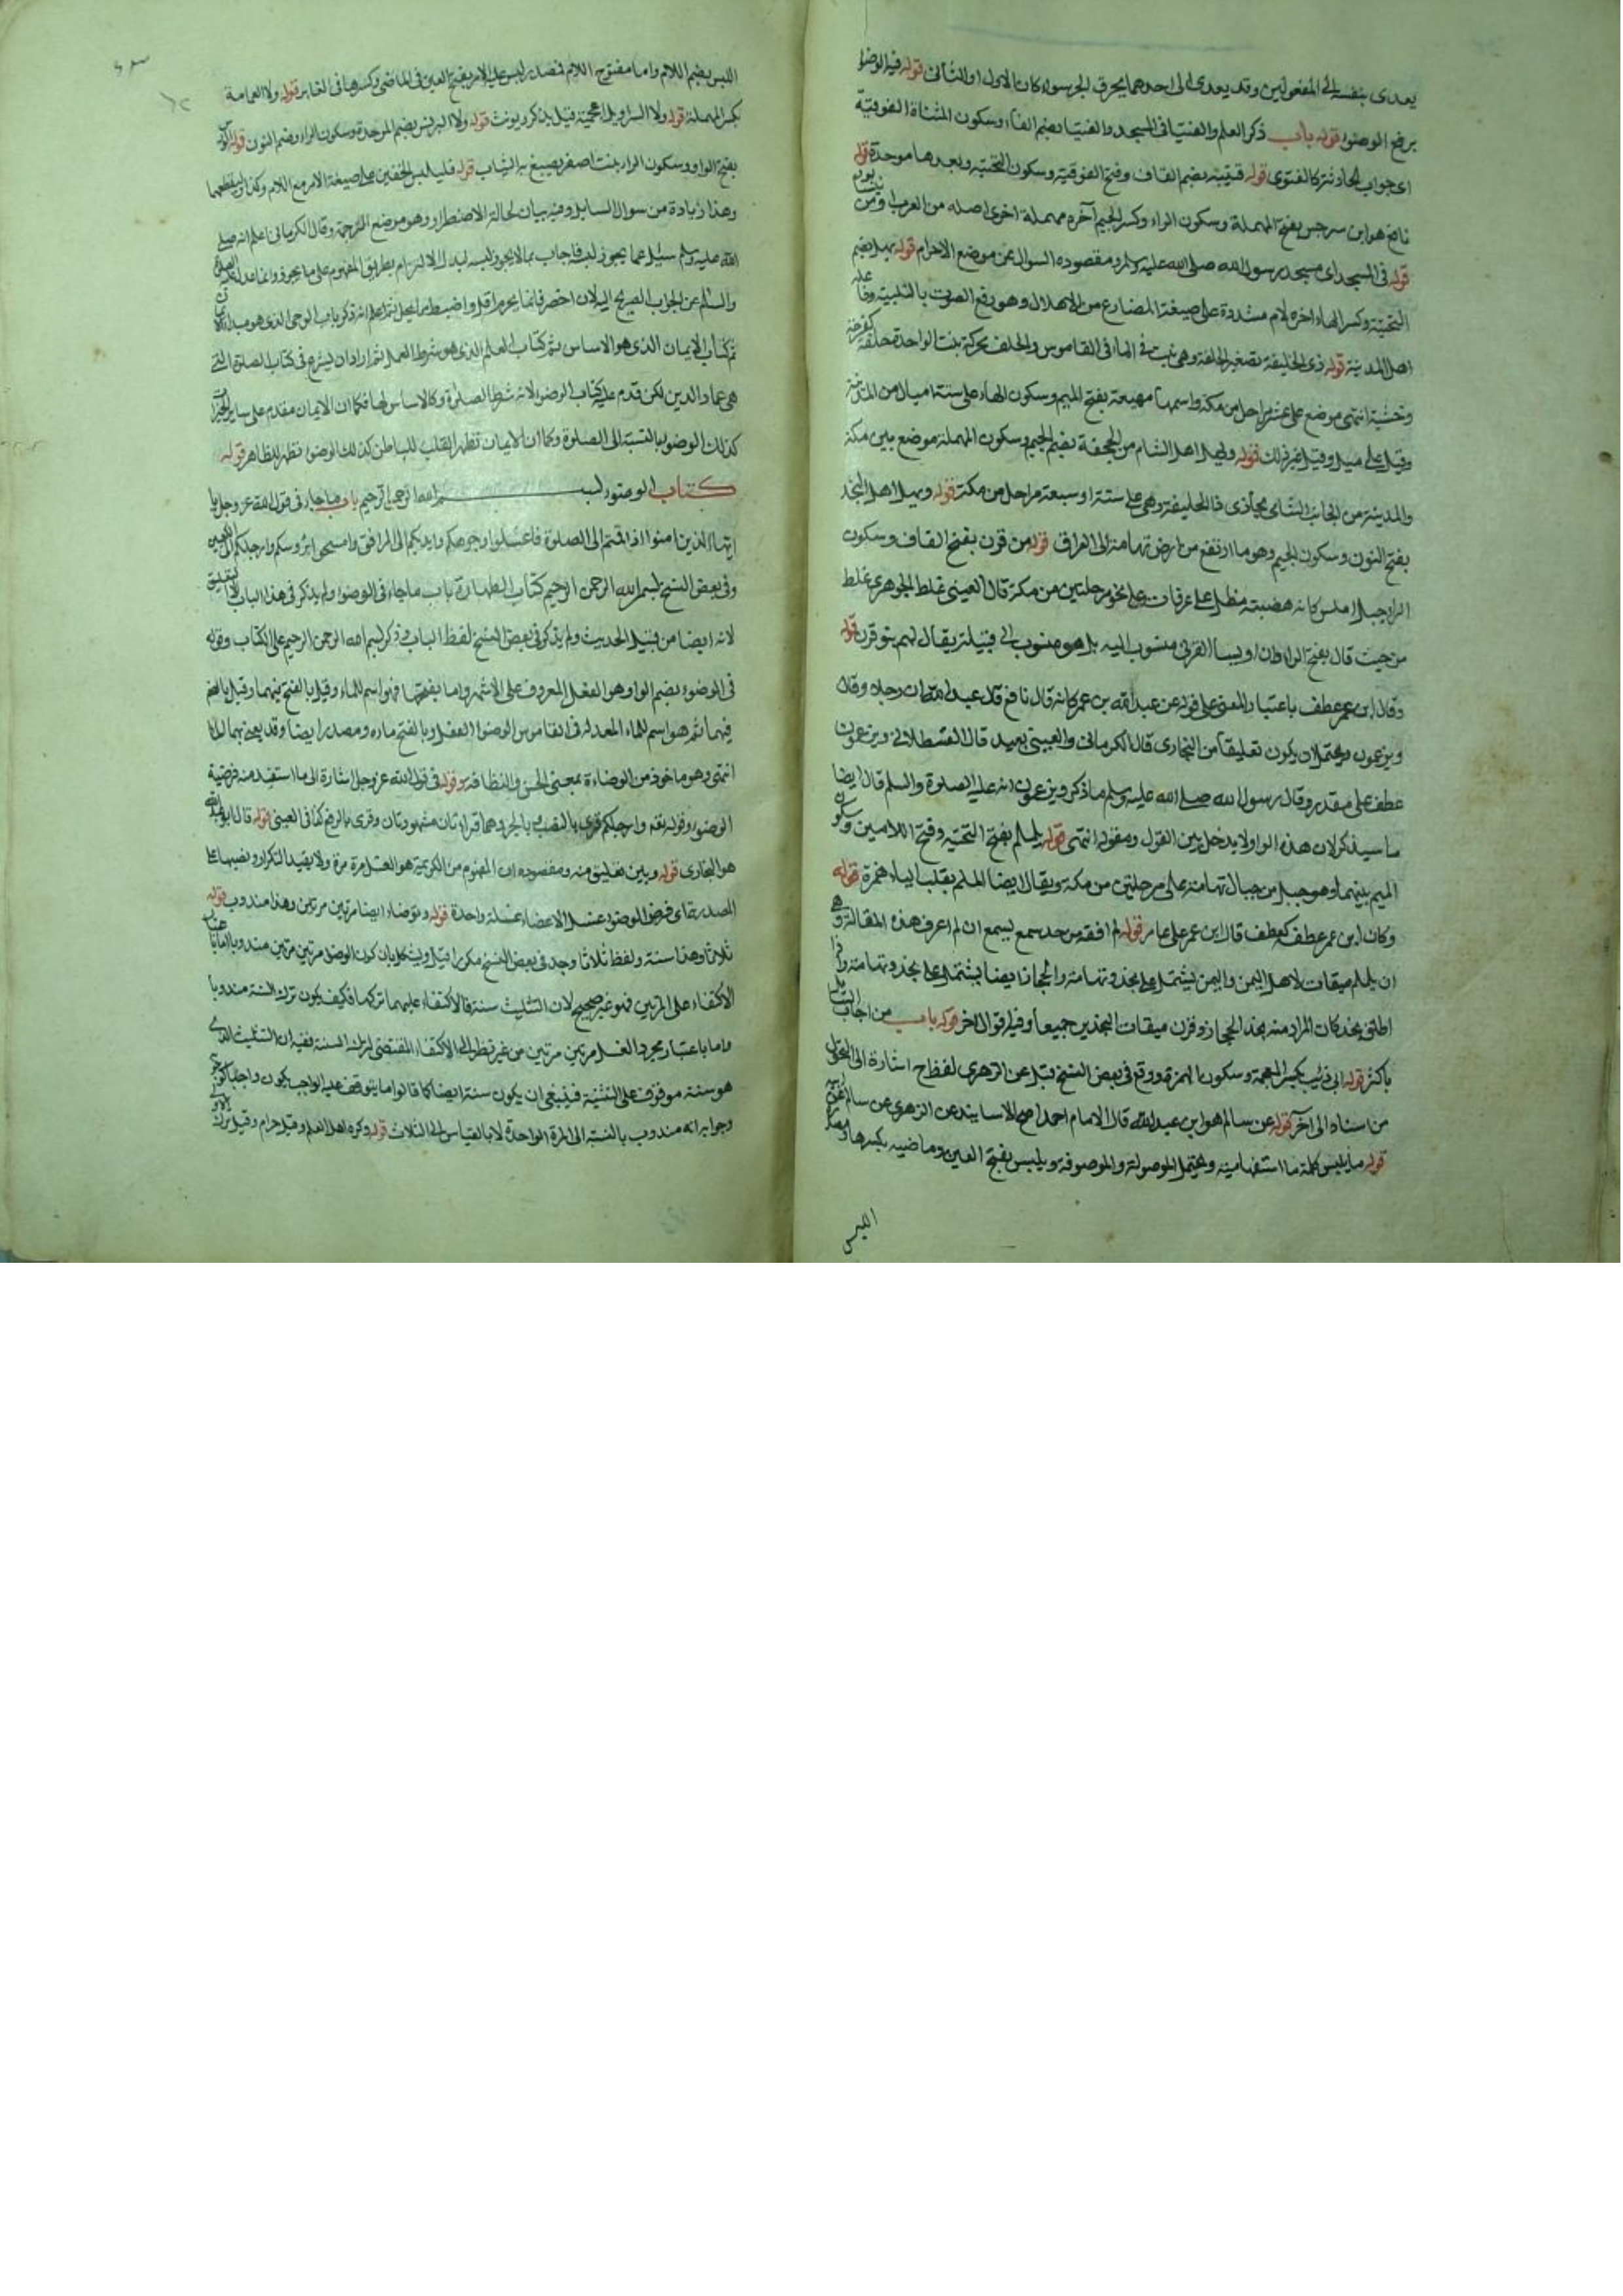 يعدى بنفسه الى المفعولين وقد يعدى الى احدهما بحرف الجر سواء كان الاول او الثانى قوله فيه الوضوء
برفع الوضوء قوله باب ذكر العلم والفتيا فى المسجد والفتيا بضم الفاء وسكون المثناة الفوقية
اى جواب الحادثة كالفتوى قوله قتيبة بضم القاف وفتح الفوقية وسكون التحتية وبعدها موحدة قوله
نافع هو ابن سرجس بفتح المهملة وسكون الراء وكسر الجيم آخره مهملة اخرى اصله من العرب
قوله فى المسجد اى مسجد رسول الله صلى الله عليه وسلم ومقصوده السوال عن موضع الاحرام قوله يهل بضم
التحتية وكسر الهاء اخره لام مشددة على صيغة المضارع من الاهلال وهو رفع الصوت بالتلبية
اهل المدينة قوله ذى الحليفة تصغير الحلفة وهى نبت فى الماء فى القاموس والحلف محركة نبت الواحدة حلفة كفرحة
وخشبة انتهى موضع على عشر مراحل من مكة واسمها مهيعة بفتح الميم وسكون الهاء على ستة اميال من المدينة
وقيل على ميل وقيل غير ذلك قوله ويهل اهل الشام من الجحفة بضم الجيم وسكون المهملة موضع بين مكة
والمدينة من الجانب الشامى يحاذى ذا الحليفة وهى على ستة او سبعة مراحل من مكة قوله ويهل اهل النجد
بفتح النون وسكون الجيم وهو ما ارتفع من ارض تهامة الى العراق قوله من قرن بفتح القاف وسكون
الراء جبل املس كانه هضبة مطل على عرفات وعلى نحو مرحلتين من مكة قال العينى غلط الجوهرى غلط
من حيث قال بفتح الراء وان اويسا القرنى منسوب اليه بل هو منسوب الى قبيلة يقال لهم بنو قرن قوله
وقال ابن عمر عطف باعتبار المعنى على قوله عن عبد الله بن عمر كانه قال نافع قال عبد الله ان رجلا وقال
ويزعمون ويحتمل ان يكون تعليقا من البخارى قال الكرمانى والعينى بعيد قال القسطلانى ويزعمون
عطف على مقدر وقال رسول الله صلى الله عليه وسلم ما ذكر ويزعمون انه عليه الصلوة والسلم قال ايضا
ما سيذكر لان هذه الواو لا يدخل بين القول ومقوله انتهى قوله يلملم بفتح التحتية وفتح اللامين وسكون
الميم بينهما وهو جبل من جبال تهامة على مرحلتين من مكة ويقال ايضا الملم بقلب الياء همزة قوله
وكان ابن عمر عطف كعطف قال ابن عمر على عامر قوله لم افقه من حد سمع يسمع ان لم اعرف هذه المقالة وهى
ان يلملم ميقات لاهل اليمن واليمن يشتمل على نجد وتهامة والحجاز ايضا يشتمل على نجد وتهامة
اطلق نجد كان المراد منه نجد الحجاز وقرن ميقات النجدين جميعا وفيه اقوال اخر قوله باب من اجاب السائل
باكثر قوله ابى ذئب بكسر المعجمة وسكون الهمزة ووقع فى بعض النسخ قبل عن الزهرى لفظ ح اشارة الى التحويل
من اسناد الى آخر قوله عن سالم هو ابن عبد الله قال الامام احمد اصح الاسانيد عن الزهرى عن سالم عن ابيه
قوله ما يلبس كلمة ما استفهامية ويحتمل الموصولة والموصوفة ويلبس بفتح العين وماضيه بكسرها
اللبس
اللبس بضم اللام واما مفتوح اللام فمصدر لبس عليه الامر بفتح العين فى الماضى وكسرها فى الغابر قوله ولا العمامة
بكسر المهملة قوله ولا السراويل اعجمية قيل يذكر ويونث قوله ولا البرنس بضم الموحدة وسكون الراء وضم النون قوله الورس
بفتح الواو وسكون الراء نبت اصفر يصبغ به الثياب قوله فليلبس الخفين على صيغة الامر مع اللام وكذا وليقطعهما
وهذا زيادة من سوال السايل وفيه بيان لحالة الاضطرار وهو موضع الترجمة وقال الكرمانى اعلم انه صلى
الله عليه وسلم سئل عما يجوز لبسه فاجاب بما لا يجوز لبسه ليدل الالتزام بطريق المفهوم على ما يجوز وانما عدل عليه الصلوة
والسلم عن الجواب الصريح اليه لان احصر فان ما يحرم اقل واضبط مما يحل ثم اعلم انه ذكر باب الوحى الذى هو مبدا
ثم كتاب الايمان الذى هو الاساس ثم كتاب العلم الذى هو شرط العمل ثم اراد ان يشرع فى كتاب الصلوة التى
هى عماد الدين لكن قدم عليه كتاب الوضوء لانه شرط الصلوة وكالاساس لها فكما ان الايمان مقدم على ساير
كذلك الوضوء بالنسبة الى الصلوة وكما ان الايمان تطهر القلب للباطن كذلك الوضوء تطهر للظاهر قوله
كتاب الوضوء بسم الله الرحمن الرحيم باب ما جاء فى قول الله عز وجل يا
ايها الذين امنوا اذا قمتم الى الصلوة فاغسلوا وجوهكم وايديكم الى المرافق وامسحوا برؤسكم وارجلكم الى الكعبين
وفى بعض النسخ بسم الله الرحمن الرحيم كتاب الطهارة باب ما جاء فى الوضوء ولم يذكر فى هذا الباب الا التعليق
لانه ايضا من قبيل الحديث ولم يذكر فى بعض النسخ لفظ الباب وذكر بسم الله الرحمن الرحيم على الكتاب وقوله
فى الوضوء بضم الواو هو الفعل المعروف على الاشهر واما بفتحها فهو اسم للماء وقيل بالفتح فيهما وقيل بالضم
فيهما ثم هو اسم للماء المعد له فى القاموس الوضوء الفعل وبالفتح ماءه ومصدر ايضا وقد يعنى بهما الماء
انتهى وهو ماخوذ من الوضاءة بمعنى الحسن والنظافة وقوله فى قول الله عز وجل اشارة الى ما استفيد منه فرضية
الوضوء وقوله وارجلكم قرى بالنصب وبالجر وهما قراءتان مشهورتان وقرى بالرفع كذا فى العينى قوله قال ابو عبد الله
هو البخارى قوله وبين تعليق منه ومقصوده ان المفهوم من الكريمة هو الغسل مرة مرة ولا يفيد التكرار ونصبها على
المصدرية اى فرض الوضوء غسل الاعضاء غسلة واحدة قوله وتوضاء ايضا مرتين مرتين وهذا مندوب قوله
ثلاثا وهذا سنة ولفظ ثلاثا وجد فى بعض النسخ مكررا قيل ويشكل بان كون الوضوء مرتين مرتين مندوبا
الاكتفاء على المرتين فهو غير صحيح لان التثليث سنة فالاكتفاء عليهما تركها فكيف يكون ترك السنة مندوبا
واما باعتبار مجرد الغسل مرتين مرتين من غير نظر الى الاكتفاء المقتضى لترك السنة ففيه ان التثليث الذى
هو سنة موقوف على التثنية فينبغى ان يكون سنة ايضا كما قالوا ما يتوقف عليه الواجب يكون واجبا
وجوابه انه مندوب بالنسبة الى المرة الواحدة لا بالقياس الى الثلاث قوله وكره اهل العلم وقيل حرام وقيل ترك